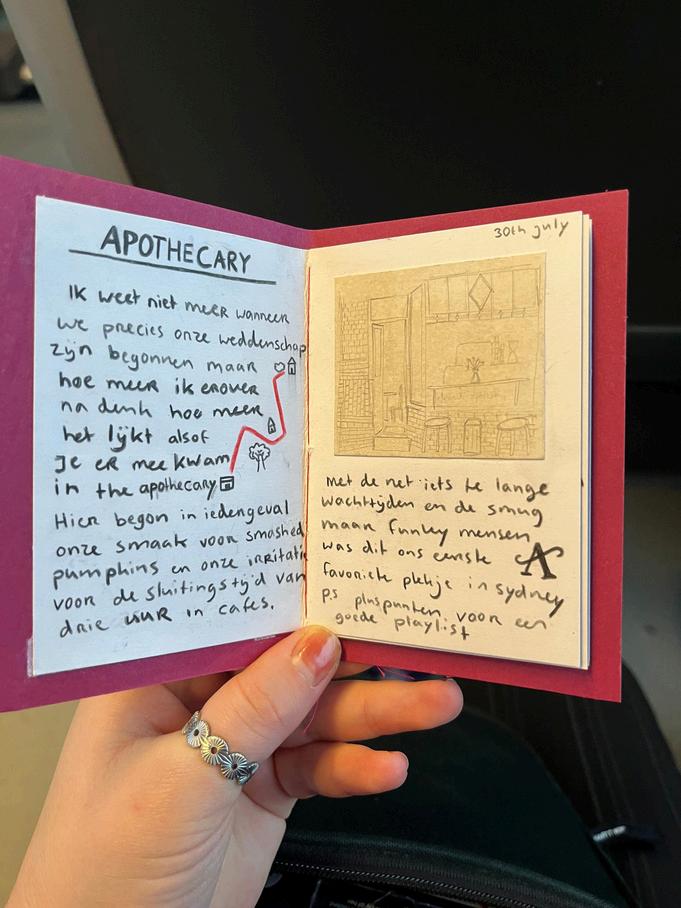 APOTHECARY
Ik weet niet meer wanneer
we precies onze weddenschap
zijn begonnen maar
hoe meer ik erover
na denk hoe meer
het lijkt alsof
je er mee kwam
in the apothecary
Hier begon in iedengeval
onze smaak voor smashed
pumpkins en onze irritatie
voor de sluitingstijd van
drie uur in cafes.
30th july
met de net iets te lange
wachttijden en de smug
maar funky mensen
was dit ons eerste
A
favoriete plekje in sydney
ps pluspunten voor een
goede playlist